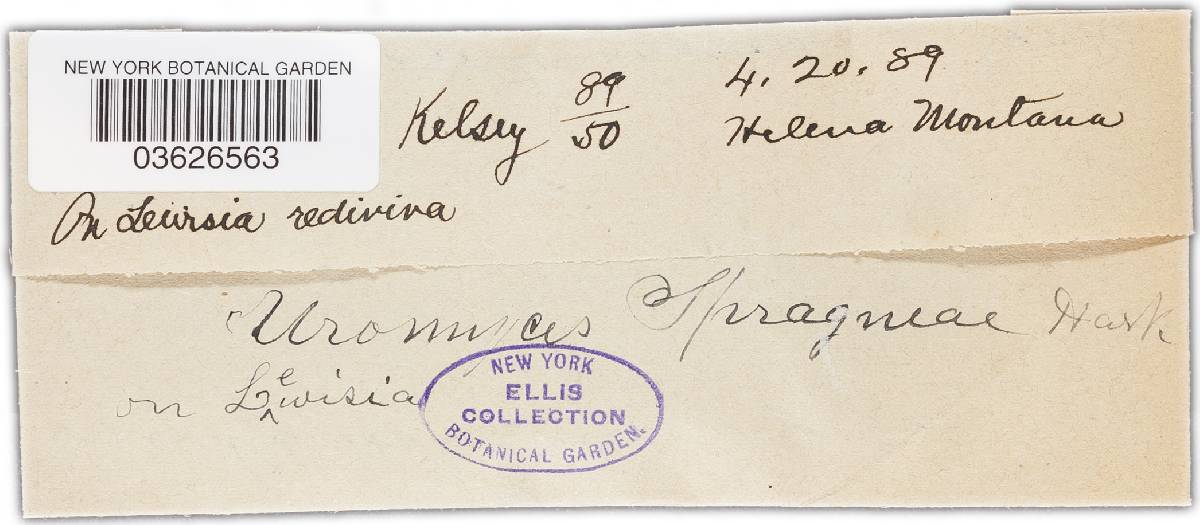 NEW YORK BOTANICAL GARDEN
03626563
Kelsey 89/50
4. 20. 89
Helena Montana
On Lewisia rediviva
Uromyces Spragueae Hark
on Lewisia
NEW YORK
ELLIS
COLLECTION
BOTANICAL GARDEN.